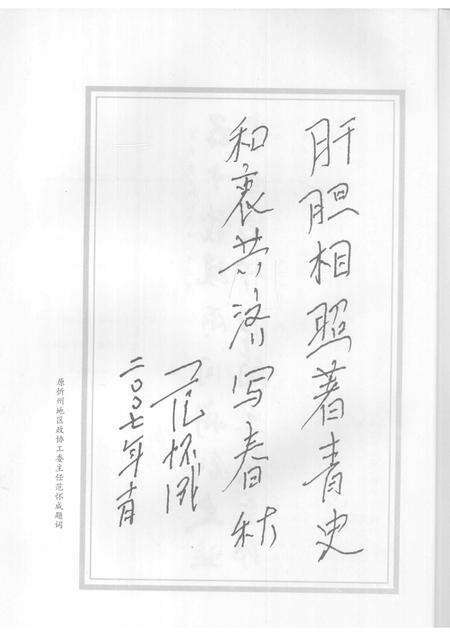 肝胆相照著青史
和衷共济写春秋
范怀威
二〇〇七年十月
原忻州地区政协工委主任范怀威题词